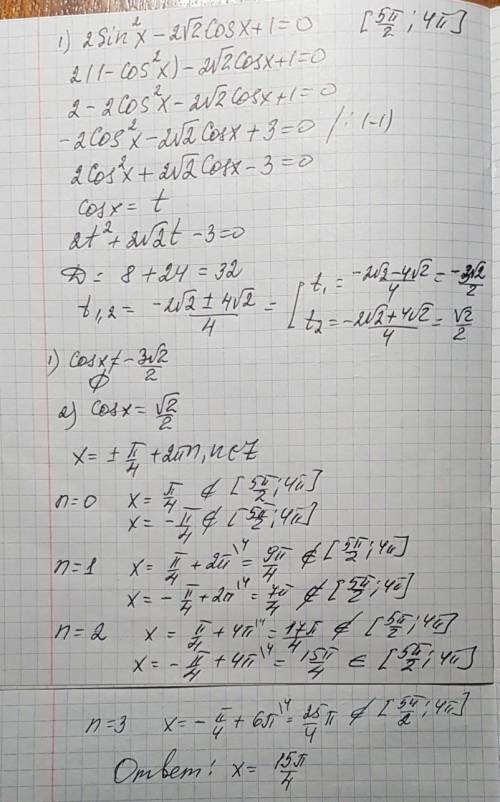 1) 2Sin²x − 2√2 Cosx + 1 = 0 [5π/2; 4π]
2(1 − cos²x) − 2√2 Cosx + 1 = 0
2 − 2Cos²x − 2√2 Cosx + 1 = 0
−2Cos²x − 2√2 Cosx + 3 = 0 /:(−1)
2Cos²x + 2√2 Cosx − 3 = 0
Cosx = t
2t² + 2√2t − 3 = 0
D = 8 + 24 = 32
t₁,₂ = (−2√2 ± 4√2)/4 = [ t₁ = (−2√2 − 4√2)/4 = −3√2/2
t₂ = (−2√2 + 4√2)/4 = √2/2
1) Cosx ≠ −3√2/2
∅
2) Cosx = √2/2
x = ±π/4 + 2πn, n∈Z
n=0 x = π/4 ∉ [5π/2; 4π]
x = −π/4 ∉ [5π/2; 4π]
n=1 x = π/4 + 2π\4 = 9π/4 ∉ [5π/2; 4π]
x = −π/4 + 2π\4 = 7π/4 ∉ [5π/2; 4π]
n=2 x = π/4 + 4π\4 = 17π/4 ∉ [5π/2; 4π]
x = −π/4 + 4π\4 = 15π/4 ∈ [5π/2; 4π]
n=3 x = −π/4 + 6π\4 = 25/4 π ∉ [5π/2; 4π]
Ответ: x = 15π/4